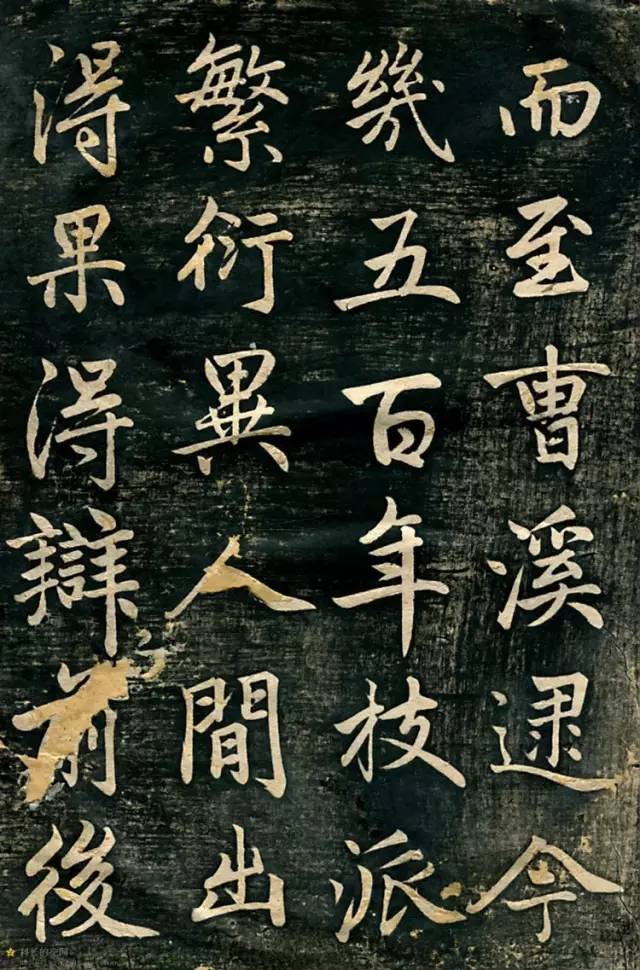 而至曹溪逮今
幾五百年枝派
繁衍異人間出
得果得辯前後